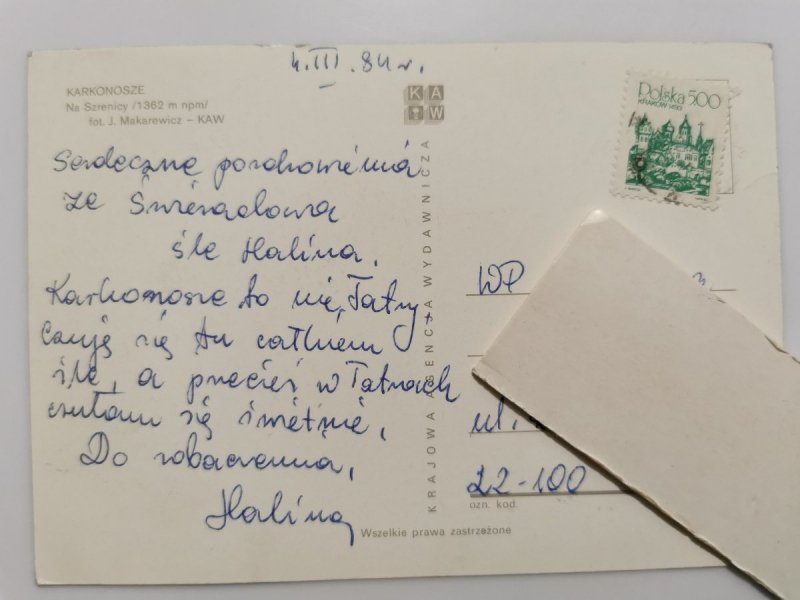 4.III.84r.
KARKONOSZE
Na Szrenicy /1362 m npm/
fot. J. Makarewicz – KAW
K A W
Polska 5.00
KRAKÓW 1493
Serdeczne pozdrowienia
ze Świeradowa
śle Halina.
Karkonosze to nie Tatry,
Czuję się tu całkiem
źle, a przecież w Tatrach
czułam się świetnie.
Do zobaczenia,
Halina
KRAJOWA AGENCJA WYDAWNICZA
WP
ul.
22-100
ozn. kod.
Wszelkie prawa zastrzeżone